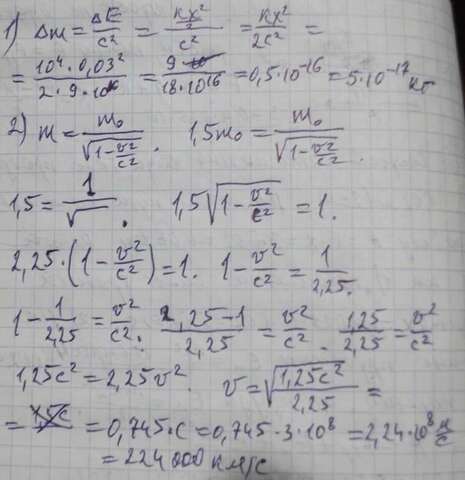 1) Δm = ΔE/c² = (kx²/2)/c² = kx²/2c² =
= 10⁴·0,03²/2·9·10¹⁶ = 9/18·10¹⁶ = 0,5·10⁻¹⁶ = 5·10⁻¹⁷ кг
2) m = m₀/√(1-v²/c²). 1,5m₀ = m₀/√(1-v²/c²).
1,5 = 1/√ . 1,5√(1-v²/c²) = 1.
2,25·(1-v²/c²) = 1. 1-v²/c² = 1/2,25.
1-1/2,25 = v²/c². (2,25-1)/2,25 = v²/c². 1,25/2,25 = v²/c²
1,25c² = 2,25v². v = √(1,25c²/2,25) =
= 0,745·c = 0,745·3·10⁸ = 2,24·10⁸ м/с
= 224 000 км/с